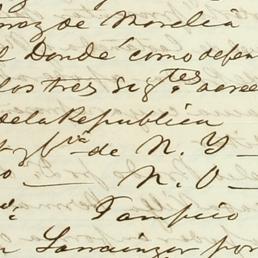 de Morelia
Donde como defen
los tres sigtes acree
de la Republica
de N. Y
N. O
Tampico
Larrainzar por